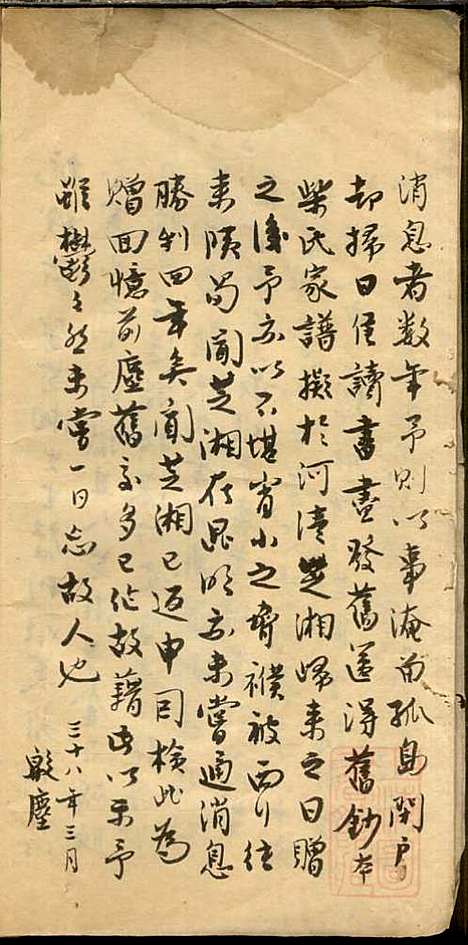 消息者数年予則以事淹留孤島閉户
却掃日惟讀書盡發舊篋得舊鈔本
柴氏家譜擬於河清芝湘歸来之日贈
之後予亦以不堪宵小之脅襆被西行往
来陝蜀聞芝湘在昆明亦未嘗通消息
勝利四年矣聞芝湘已返申司檢此為
贈回憶前塵舊交多已作故藉此以示予
雖鬱鬱之然未嘗一日忘故人也
三十八年三月
塵